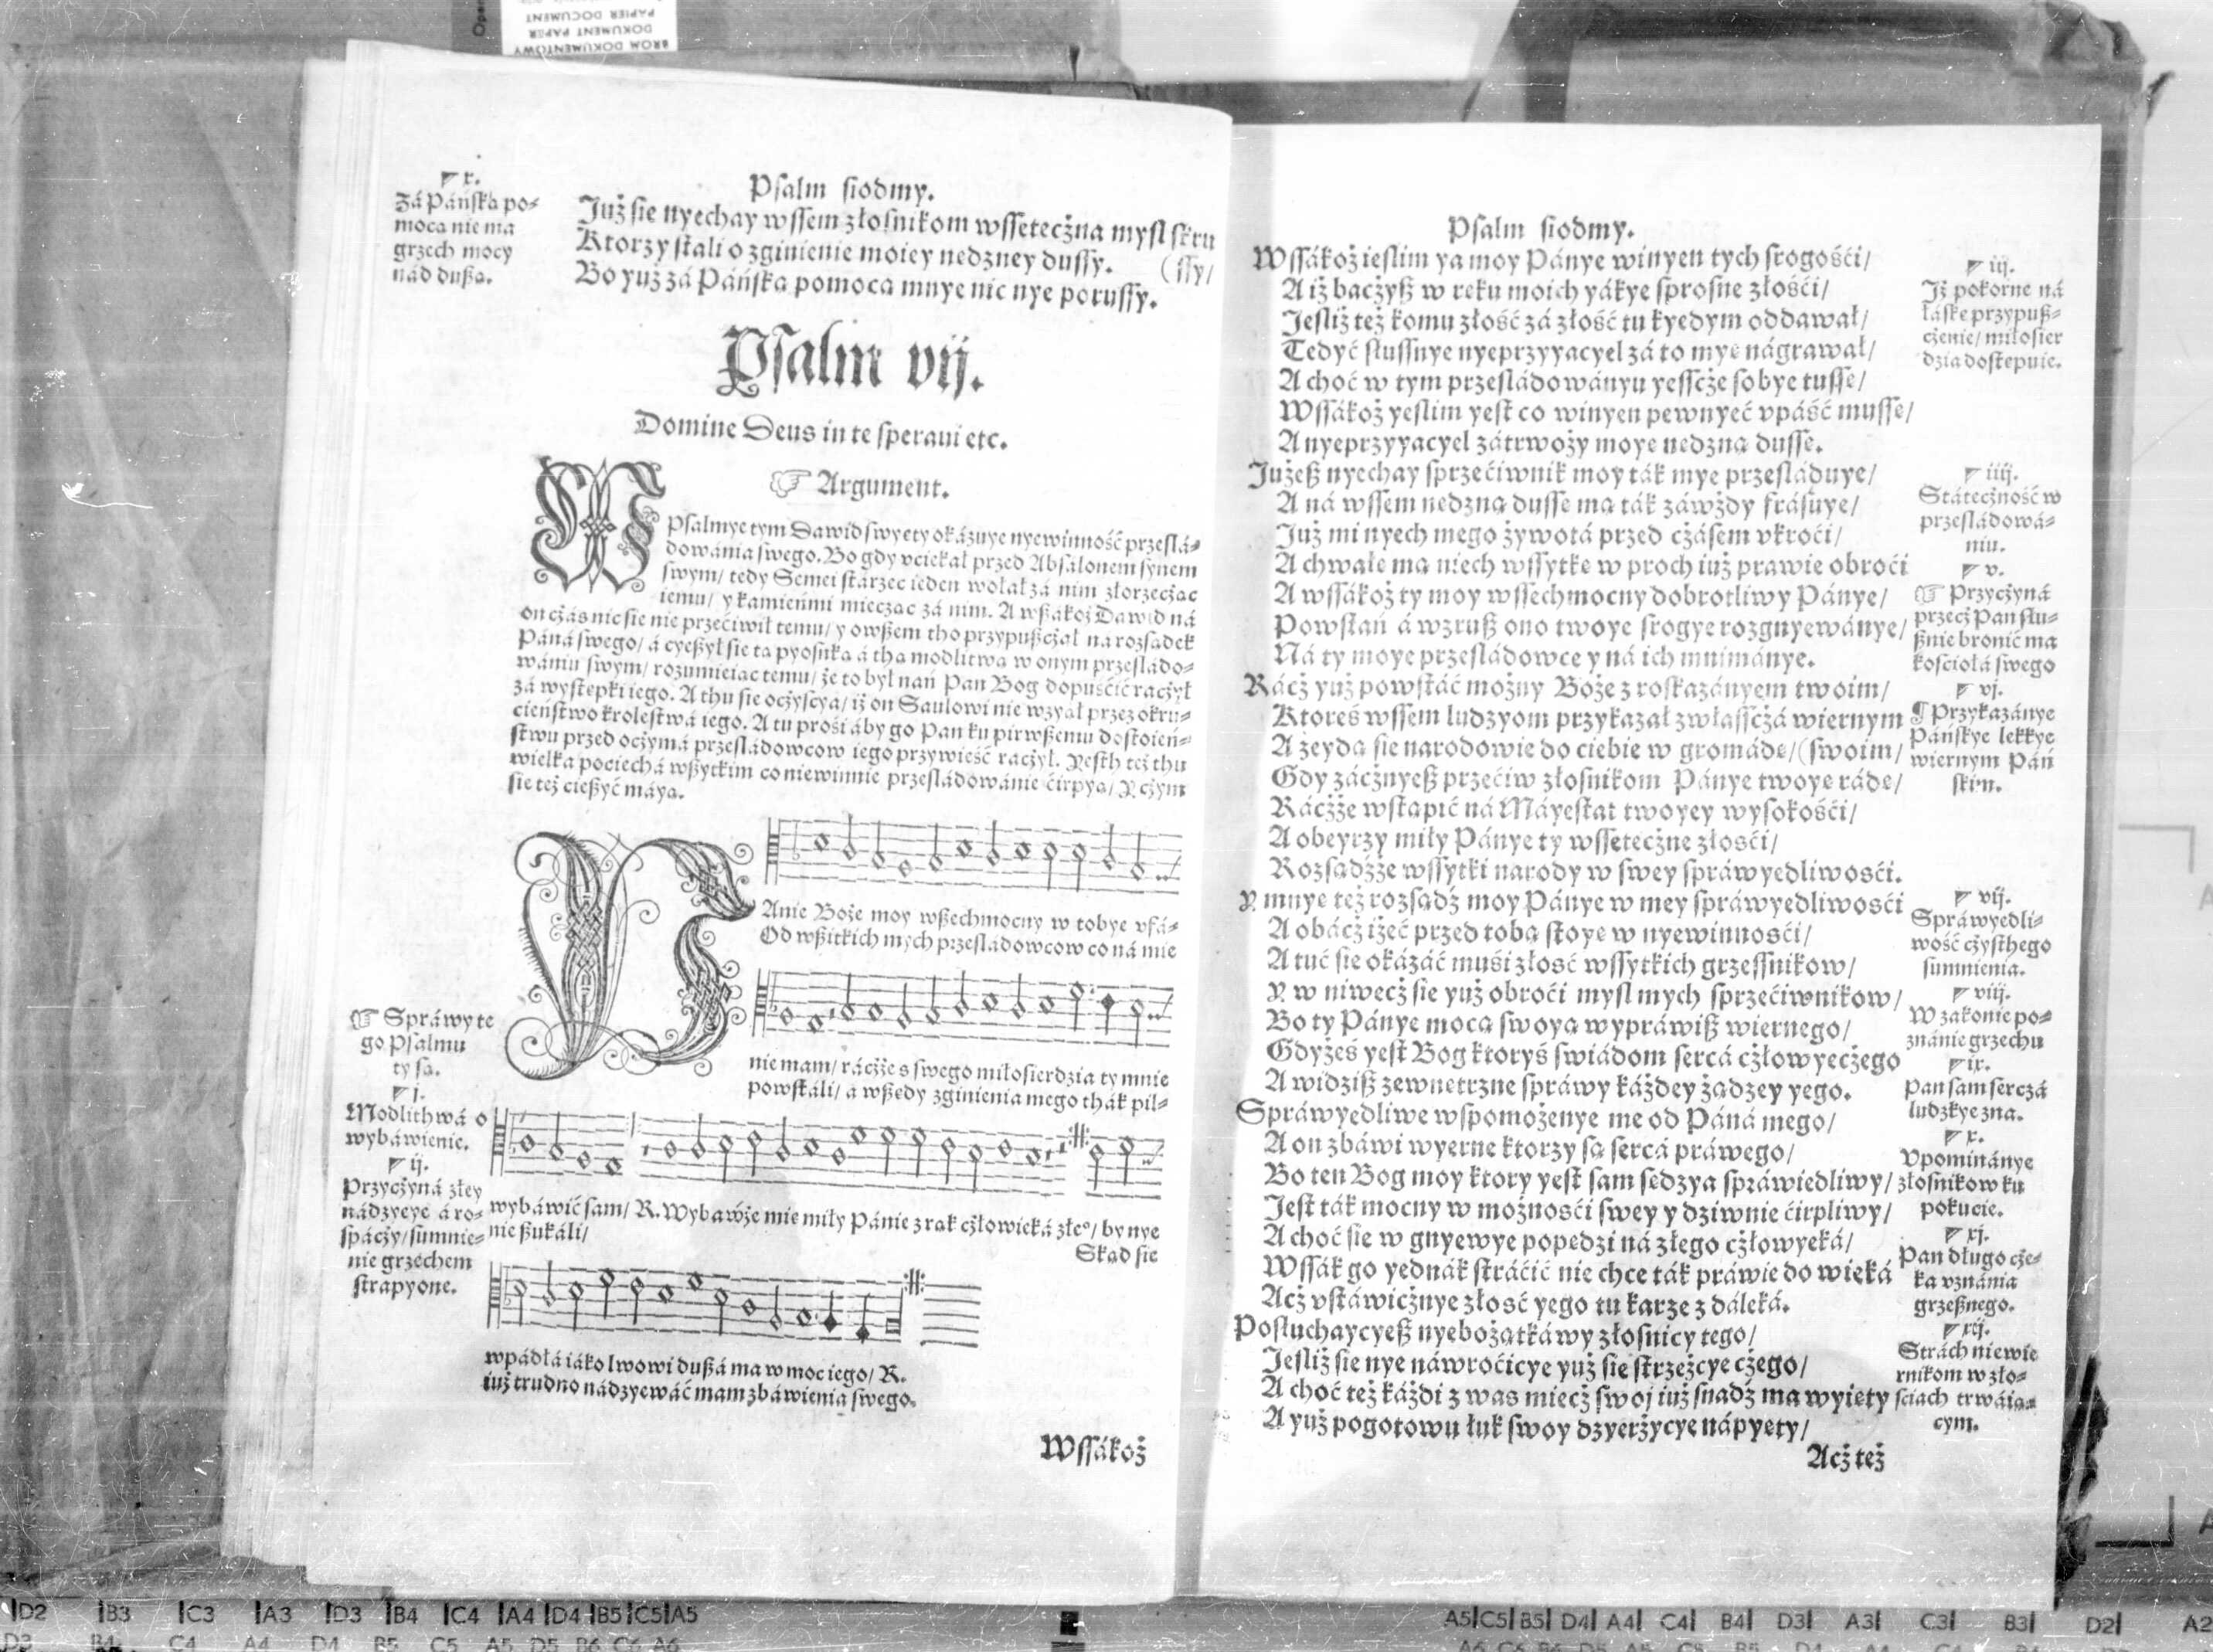 Psalm siodmy.
◤ x.
Zá Páńſką po⸗
mocą nie ma
grzech mocy
nád duſzą.
Już ſie nyechay wſſem złoſnikom wſſetecżna myſl ſkru
(ſſy/
Ktorzy ſtali o zginienie moiey nedzney duſſy.
Bo yuż zá Páńſką pomocą mnye nic nye poruſſy.
Pſalm vij.
Domine Deus in te ſperaui etc.
☞ Argument.
W Pſalmye tym Dawid ſwyety okázuye nyewinność przeſlá⸗
dowánia ſwego. Bo gdy vciekał przed Abſalonem ſynem
ſwym/ tedy Semei ſtárzec ieden wołał zá nim złorzecżąc
iemu/ y kamieńmi miecżąc zá nim. A wſzákoż Dawid ná
on cżás nic ſie nie przećiwił temu/ y owſzem tho przypuſzcżał na rozſądek
Páná ſwego/ á cyeſzył ſie tą pyoſnką á thą modlitwą w onym przeſládo⸗
wániu ſwym/ rozumieiąc temu/ że to był nań Pan Bog dopuśćić racżył
zá wyſtepki iego. A thu ſie ocżyſcya/ iż on Saulowi nie wzyął przez okru⸗
cieńſtwo kroleſtwá iego. A tu prośi áby go Pan ku pirwſzemu doſtoień⸗
ſtwu przed ocżymá przeſládowcow iego przywieść racżył. Yeſth też thu
wielka pociechá wſzytkim co niewinnie przeſládowánie ćirpyą/ Y cżym
ſie też cieſzyć máyą.
PAnie Boże moy wſzechmocny w tobye vfá⸗
Od wſzitkich mych przeſladowcow co ná mie
nie mam/ rácżże s ſwego miłoſierdzia ty mnie
powſtáli/ a wſzędy zginienia mego thák pil⸗
☞ Spráwy te
go Pſalmu
ty ſą.
◤ j.
Modlithwá o
wybáwienie.
◤ ij.
Przycżyná złey
nádzyeye á ro⸗
ſpácży/ ſumnie⸗
nie grzechem
ſtrapyone.
wybáwić ſam/ R. Wybaẃże mie miły Pánie z rąk cżłowieká złeº/ by nye
nie ſzukáli/
Skąd ſie
wpádłá iáko lwowi duſzá ma w moc iego/ R.
iuż trudno nádzyewáć mam zbáwienia ſwego.
Wſſákoż
Pſalm ſiodmy.
Wſſákoż ieſlim ya moy Pánye winyen tych ſrogośći/
A iż bacżyſz w ręku moich yákye ſproſne złośći/
Jeſliż też komu złość zá złość tu kyedym oddawał/
Tedyć ſluſſnye nyeprzyyacyel zá to mye nágrawał/
A choć w tym przeſládowányu yeſſcże ſobye tuſſe/
Wſſákoż yeſlim yeſt co winyen pewnyeć vpáść muſſe/
A nyeprzyyacyel zátrwoży moye nedzną duſſe.
Jużeſz nyechay ſprzećiwnik moy ták mye przeſláduye/
A ná wſſem nedzną duſſe mą ták záwżdy fráſuye/
Już mi nyech mego żywotá przed cżáſem vkroći/
A chwałe mą niech wſſytkę w proch iuż prawie obroći
A wſſákoż ty moy wſſechmocny dobrotliwy Pánye/
Powſtań á wzruſz ono twoye ſrogye rozgnyewánye/
Ná ty moye przeſládowce y ná ich mnimánye.
Rácż yuż powſtáć możny Boże z roſkazányem twoim/
Ktoreś wſſem ludzyom przykazał zwłaſſcżá wiernym
A zeydą ſie narodowie do ciebie w gromáde/ (ſwoim/
Gdy zácżnyeſz przećiw złoſnikom Pánye twoye ráde/
Rácżże wſtąpić ná Máyeſtat twoyey wyſokośći/
A obeyrzy miły Pánye ty wſſetecżne złośći/
Rozſądźże wſſytki narody w ſwey ſpráwyedliwośći.
Y mnye też rozſądź moy Pánye w mey ſpráwyedliwośći
A obácż iżeć przed tobą ſtoye w nyewinnośći/
A tuć ſie okázáć muśi złość wſſytkich grzeſſnikow/
Y w niwecż ſie yuż obroći myſl mych ſprzećiwnikow/
Bo ty Pánye mocą ſwoyą wypráwiſz wiernego/
Gdyżeś yeſt Bog ktoryś ſwiádom ſercá cżłowyecżego
A widziſz zewnetrzne ſpráwy káżdey żądzey yego.
Spráwyedliwe wſpomożenye me od Páná mego/
A on zbáwi wyerne ktorzy ſą ſercá práwego/
Bo ten Bog moy ktory yeſt ſam ſedzya ſpráwiedliwy/
Jeſt ták mocny w możnośći ſwey y dziwnie ćirpliwy/
A choć ſie w gnyewye popedzi ná złego cżłowyeká/
Wſſák go yednák ſtráćić nie chce ták práwie do wieká
Acż vſtáwicżnye złość yego tu karze z dáleká.
Poſłuchaycyeſz nyebożątká wy złoſnicy tego/
Jeſliż ſie nye náwroćicye yuż ſie ſtrzeżcye cżego/
A choć też káżdi z was miecż ſwoj iuż ſnadź ma wyięty
A yuż pogotowu łuk ſwoy dzyerżycye nápyęty/
Acż też
◤ iij.
Iż pokorne ná
łáſke przypuſz⸗
cżenie/ miłoſier
dzia doſtepuie.
◤ iiij.
Státecżność w
przeſládowá⸗
niu.
◤ v.
☞ Przycżyná
przecż Pan ſłu⸗
ſznie bronić ma
koſciołá ſwego
◤ vj.
¶ Przykazánye
Páńſkye lekkye
wiernym Páń
ſkim.
◤ vij.
Spráwyedli⸗
wość cżyſthego
ſumnienia.
◤ viij.
W zakonie po⸗
znánie grzechu
◤ ix.
Pan ſam ſerczá
ludzkye zna.
◤ x.
Vpominánye
złoſnikow ku
pokucie.
◤ xj.
Pan długo cże⸗
ka vznánia
grzeſznego.
◤ xij.
Strách niewie
rnikom w zło⸗
ſciach trwáią⸗
cym.